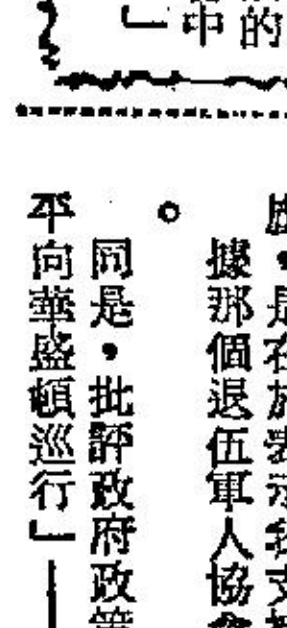 的
中
」
應，是在於表示我支持
據那個退伍軍人協會
。
同是，批評政府政策
平向華盛頓巡行」—